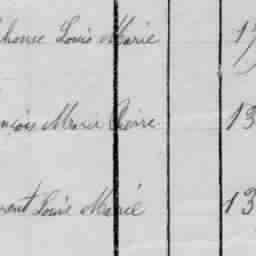 phonse Louis Marie 17
nçois Marie Pierre 13
ment Louis Marie 13